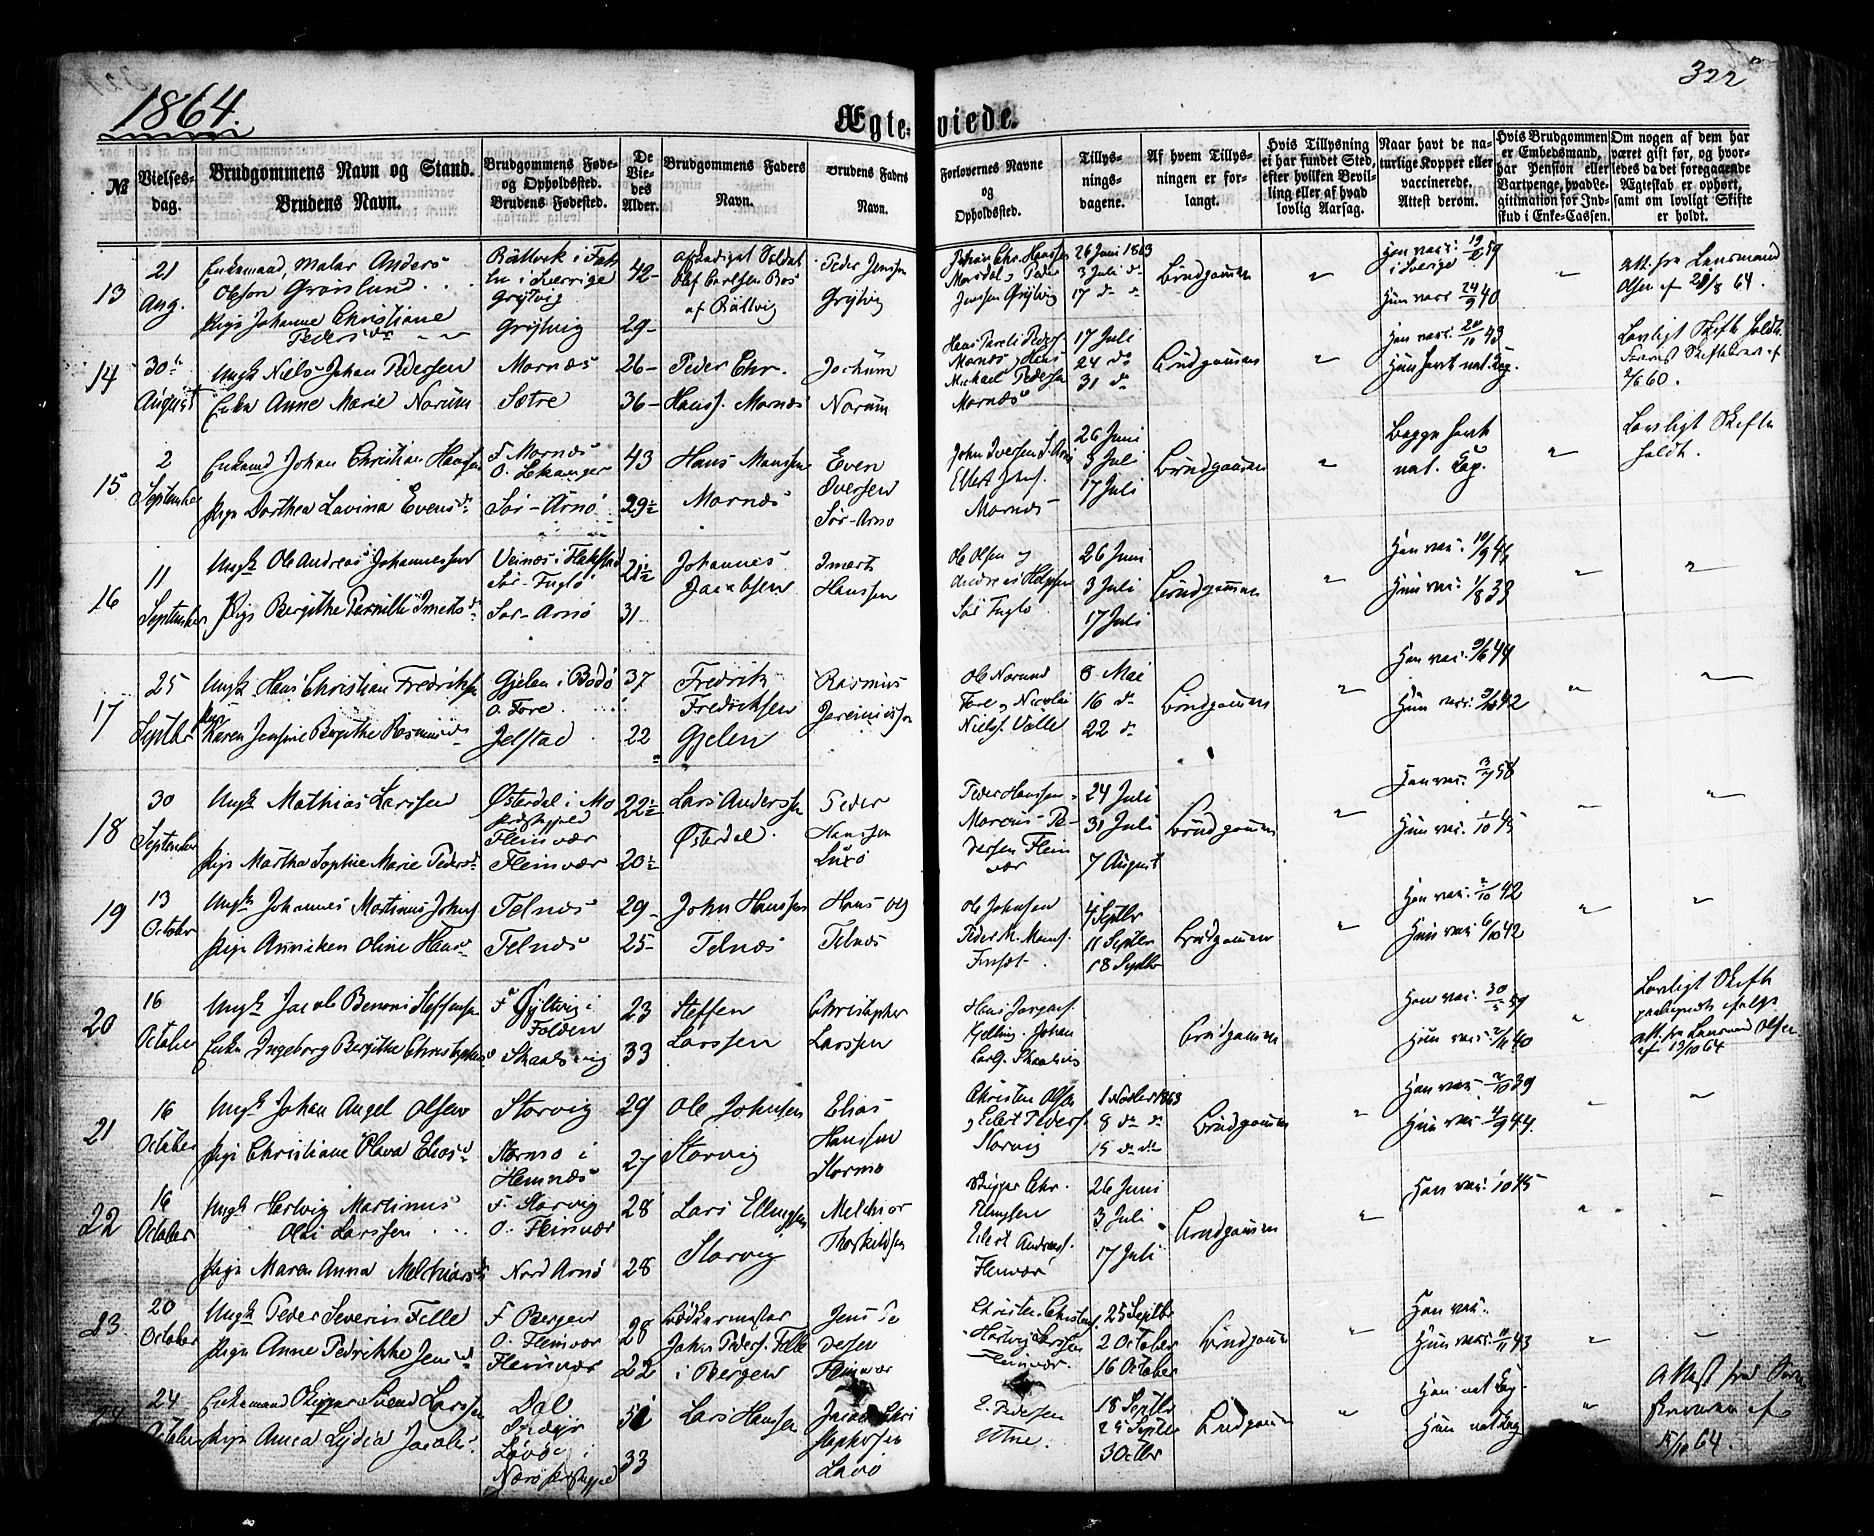 1864.
322
Ægte-viede.
№
Vielses-
dag.
Brudgommens Navn og Stand.
Brudens Navn.
Brudgommens Føde-
og Opholdssted.
Brudens Fødested.
De
Vie-
des
Alder.
Brudgommens Faders
Navn.
Brudens Faders
Navn.
Forlovernes Navne
og
Opholdssted.
Tillys-
nings-
dagene.
Af hvem Tillys-
ningen er for-
langt.
Hvis Tillysning
ei har fundet Sted,
efter hvilken Bevil-
ling eller af hvad
lovlig Aarsag.
Naar havt de na-
turlige Kopper eller
vaccinerede,
Attest derom.
Hvis Brudgommen
er Embedsmand,
har Pension eller
Vartpenge, hvad Le-
gitimation for Ind-
skud i Enke-Cassen.
Om nogen af dem har
været gift før, og hvor-
ledes da det foregaaende
Ægteskab er ophørt,
samt om lovligt Skifte
er holdt.
13
21
Aug.
Enkemand, Maler Anders
Olsson Grønlund
Pige Johanne Christiane
Pedersdr
Rättvik i
i Sverrige
Grytvig
Grytvig
42
29
Soldat
Olof Carlsen
af Rättvig
Peder Jenssen
Grytvig
Johan Chr. Hanssen
Peder
Jenssen Grytvig
26 Juni 1863
3 Juli do
17 do do
Brudgommen
Han vacc. 19/6 57
i Sverige
Hun vacc 24/9 40
att. fra Lensmand
Olsen af 21/8 64.
14
30te
August
Ungk Niels Johan Pedersen
Enke Anne Marie Norum
Mornæs
Sætre
26
36
Peder Chr.
Hanss. Mornæs
Jochum
Norum
Mornæs, Hans
Michael Pedersen
Mornæs
17 Juli
24 do
31 do
Brudgommen
Han vacc. 20/10 43
Hun havt nat. Kop.
Lovligt Skifte holdt
2/6 60.
15
2
September
Enkemd Johan Christian Hanssen
Pige Dorthea Lovina Evensdr
F. Mornæs
O. Lekanger
Sør-Arnø
43
29½
Hans Monssen
Mornæs
Even
Iversen
Sør-Arnø
John Iversen S. Arnø
Ellert Johns.
Mornæs
26 Juni
3 Juli
17 Juli
Brudgommen
Begge havt
nat. Kop.
Lovligt Skifte
holdt.
16
11
September
Ungk Ole Andreas Johannessen
Pige Bergithe Pernille Imertsdr
Veinæs i Flakstad
Sør-Fuglø
Sør-Arnø
21½
31
Johannes
Jacobsen
Imert
Hanssen
Ole Olsen og
Sør Fuglø
26 Juni
3 Juli
17 Juli
Brudgommen
Han vac. 10/9 47
Hun vac. 1/8 33
17
25
Septbr
Ungk Hans Christian Fredriksen
Pige
Karen Jensine Bergithe Rasmusdr
Gjelen i Bodø
O. Fore
Jelstad
37
22
Fredrik
Fredriksen
Gjelen
Rasmus
Jeremiassen
Ole Norund
Fore og Nicolai
Niels. Valle
8 Mai
16 do
22 do
Brudgommen
Han vac. 9/6 44
Hun vac. 42
18
30
September
Ungk Mathias Larssen
Pige Martha Sophie Marie Pedersdr
Østerdal i Mo
Præstegjeld
Fleinvær
Fleinvær
22½
20½
Lars Anderssen
Østerdal
Peder
Hanssen
Luxø
Peder Hanssen
Marcus Pe-
dersen Flein
vær
24 Juli
31 Juli
7 August
Brudgommen
Han vac. 3/7 58
Hun vac. 1/10 45
19
13
October
Ungk Johannes Martinus Johns.
Pige Anniken Oline Hansdr
Telnæs
Telnæs
29
25
John Hanssen
Telnæs
Hans Olss
Telnæs
Ole Johnsen
Peder M. Mons.
4 Septbr
11 Septbr
18 Septbr
Brudgommen
Han vac. 2/10 42
Hun vac 6/10 42
20
16
October
Ungk Jacob Benoni Steffensen
Enke Ingeborg Bergithe Christophersdr
F. Gyltvig i
Folden
Skaalsvig
23
33
Steffen
Larssen
Christopher
Larssen
Hans Jørgens.
Kjelling, Johan
Carls. Skaalsvig
Brudgommen
Han vac. 30/5 59
Hun vac. 2/11 40
Lovligt Skifte
att. fra Lensmand Olsen
af 13/10 64
21
16
October
Ungk Johan Angel Olsen
Pige Christiane Olava Eliasdr
Storvig
Stormo i
Hemnæs
29
27
Ole Johnsen
Storvig
Elias
Hanssen
Stormo
Christen Olsen
og Eilert Peders.
Storvig
1 Novbr 1863
8 do do
15 do do
Brudgommen
Han vac. 2/10 39
Hun vac 4/9 44
22
16
October
Ungk Hertvig Martinus
Olai Larssen
Pige Maren Anna Melchiorsdr
F. Storvig
O. Fleinvær
Nord Arnø
28
28
Lars Ellingsen
Storvig
Melchior
Torkildsen
Skipper Chr.
Ellingsen
Eilert Andreas.
Fleinvær
26 Juni
3 Juli
17 Juli
Brudgommen
Han vac. 1845
23
20
October
Ungk Peder Severin Felle
Pige Anne Pedrikke Jensdr
F. Bergen
O. Fleinvær
Fleinvær
28
22
Bødkermester
Johan Peders. Felle
i Bergen
Jens Pe
dersen
Fleinvær
Christen Christens.
Hartvig Larssen
Fleinvær.
25 Septbr
2 October
16 October
Brudgommen
Han vac.
Hun vac. 11/11 43
24
24
October
Enkemand Skipper Svend Larssen
Pige Anna Lydia Jacobs.
Dal
Løvø i
Nærø Præstegjeld
51
33
Lars Hanssen
Jacob Chri
stophersen
Løvø
E. Pedersen
Utne.
18 Septbr
25 Septbr
3 Octbr
Brudgommen
Han nat Kop.
Hun nat Kop
Attest fra Soren
skriveren af
15/10 64.